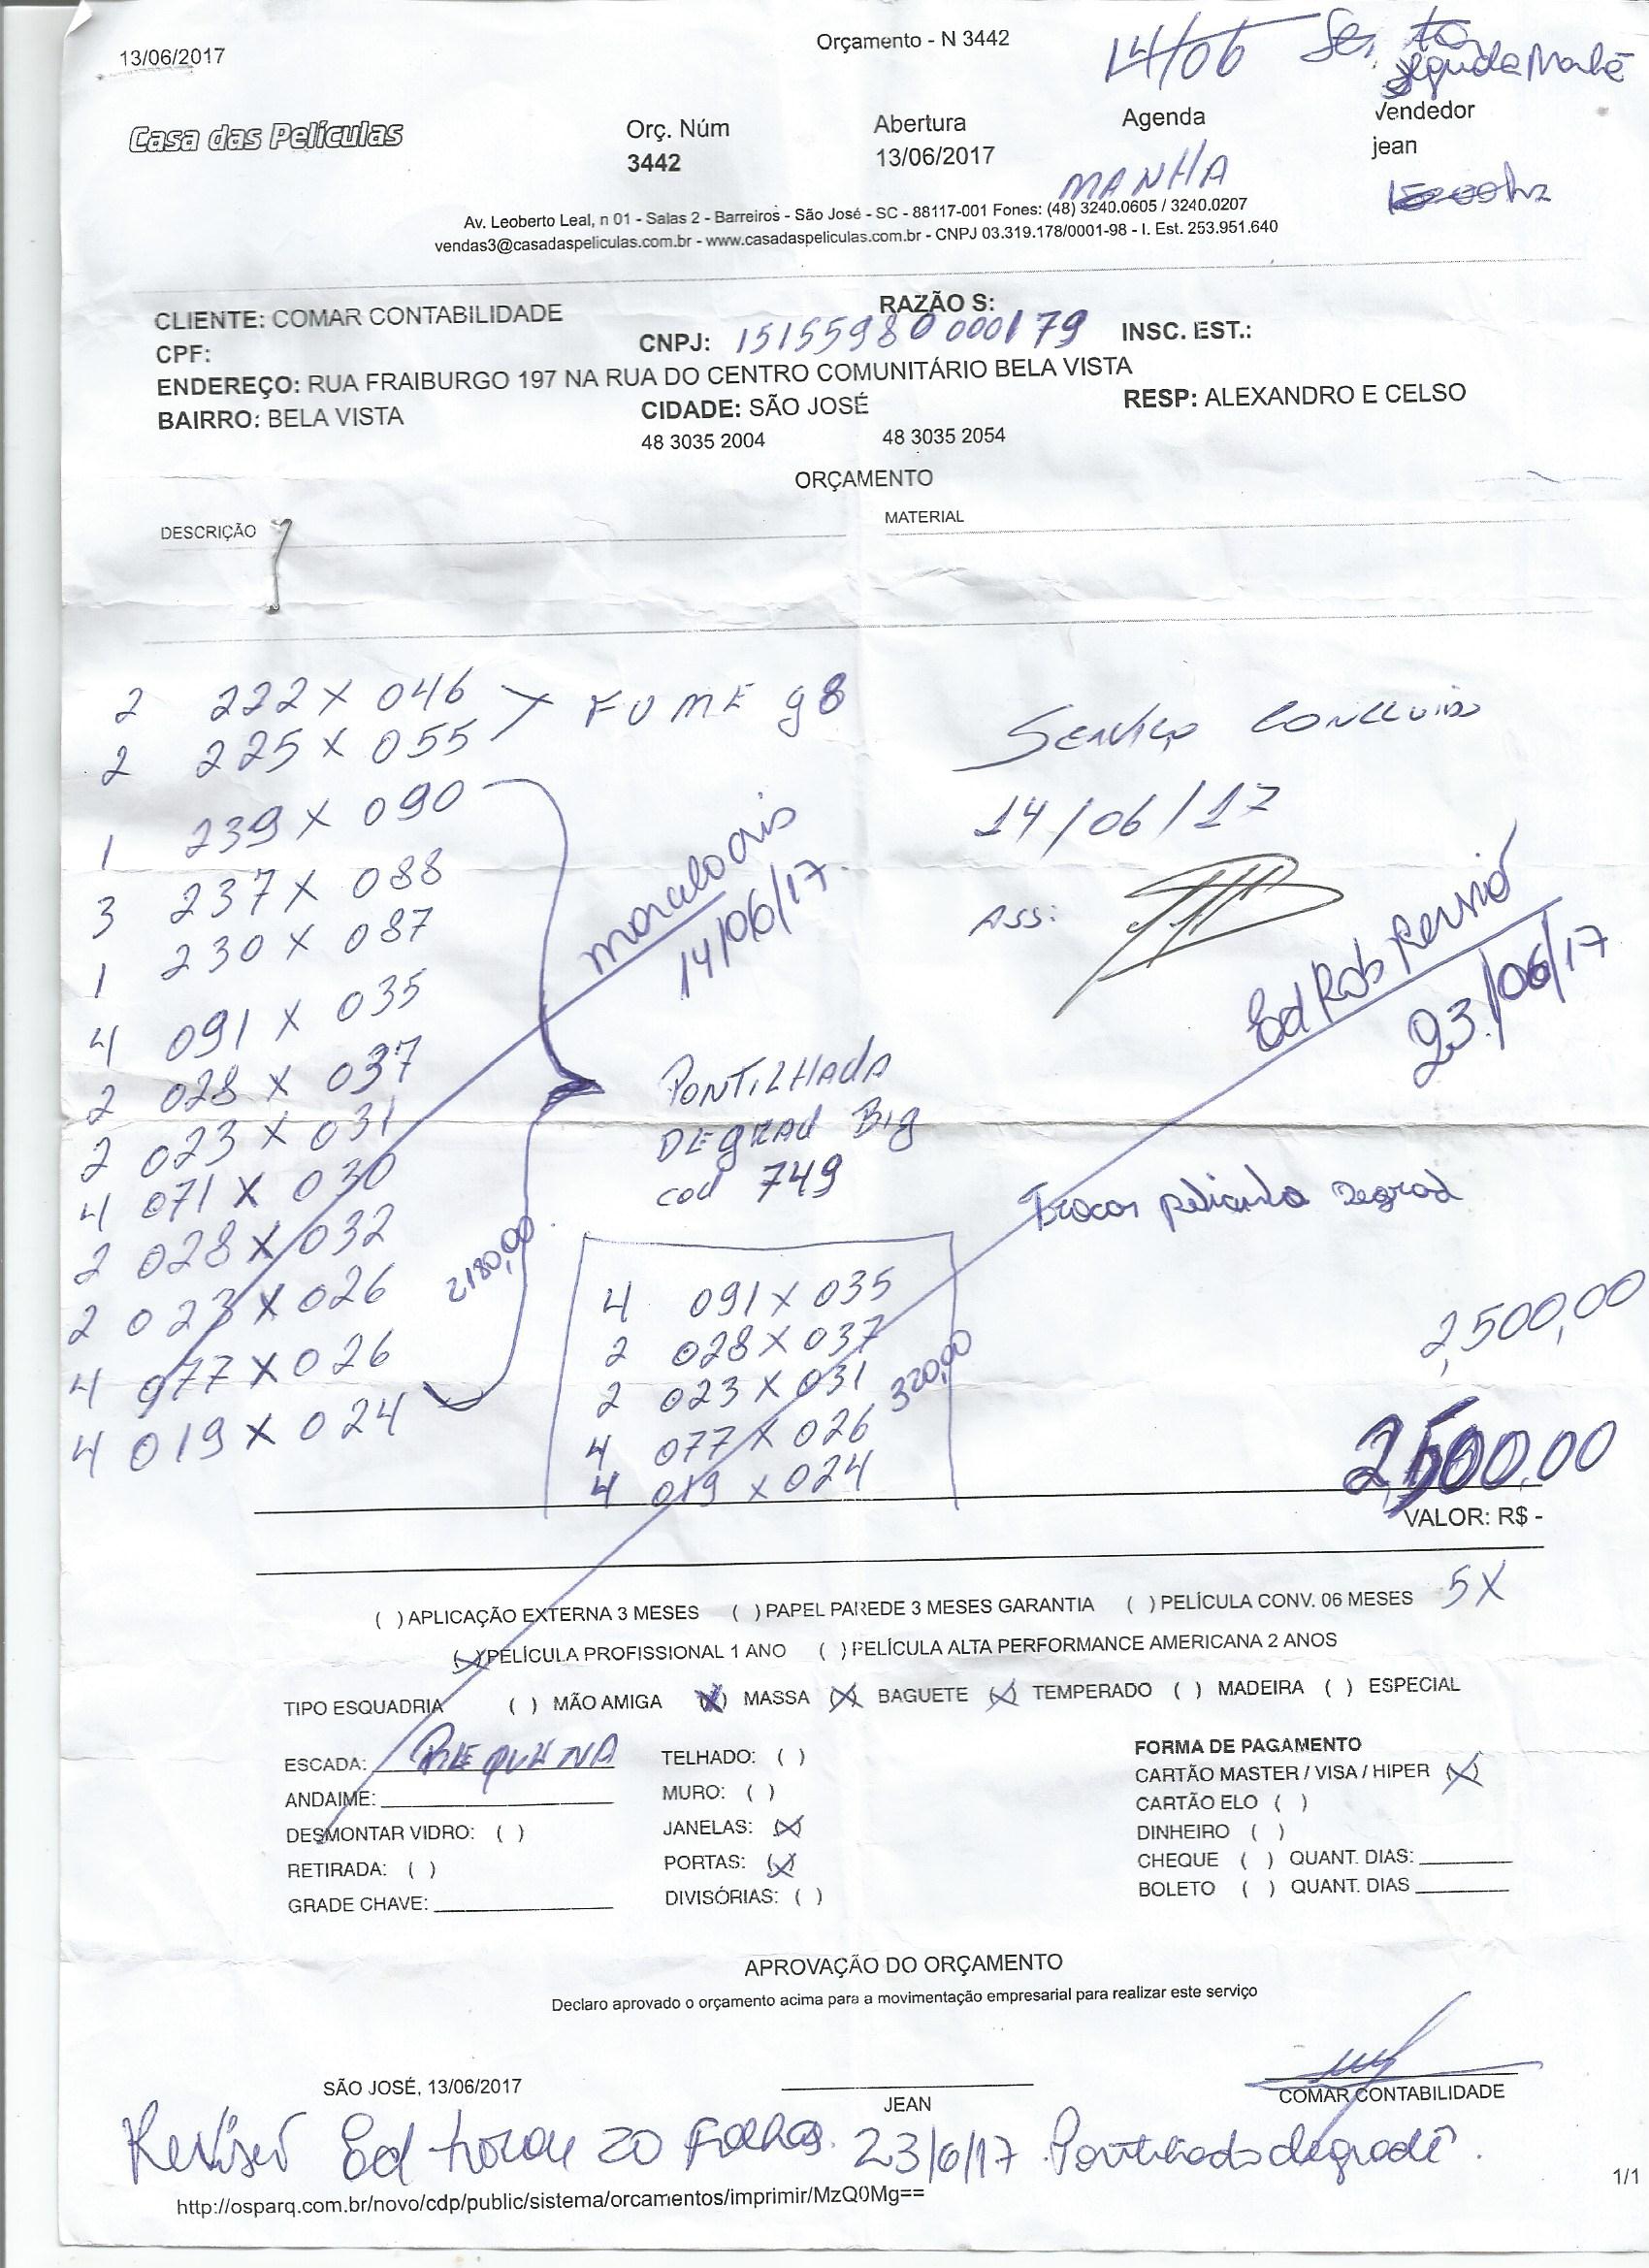 13/06/2017
Orçamento - N 3442
14/06
Casa das Películas
Orç. Núm
3442
Abertura
13/06/2017
Agenda
MANHA
Vendedor
jean
Av. Leoberto Leal, n 01 - Salas 2 - Barreiros - São José - SC - 88117-001 Fones: (48) 3240.0605 / 3240.0207
vendas3@casadaspeliculas.com.br - www.casadaspeliculas.com.br - CNPJ 03.319.178/0001-98 - I. Est. 253.951.640
CLIENTE: COMAR CONTABILIDADE
RAZÃO S:
CPF:
CNPJ: 15155980000179
INSC. EST.:
ENDEREÇO: RUA FRAIBURGO 197 NA RUA DO CENTRO COMUNITÁRIO BELA VISTA
BAIRRO: BELA VISTA
CIDADE: SÃO JOSÉ
RESP: ALEXANDRO E CELSO
48 3035 2004
48 3035 2054
ORÇAMENTO
DESCRIÇÃO
MATERIAL
2 222 X 046
2 225 X 055
FUME g8
1 239 X 090
3 237 X 088
1 230 X 087
4 091 X 035
2 028 X 037
2 023 X 031
4 071 X 030
2 028 X 032
2 023 X 026
4 077 X 026
4 019 X 024
2180,00
14/06/17
Serviço concluido
14/06/17
Ass:
23/06/17
PONTILHADA
DEGRAD Big
cod 749
Trocar pelicula Degrad
4 091 X 035
2 028 X 037
2 023 X 031
4 077 X 026
4 019 X 024
320,00
2,500,00
2,500,00
VALOR: R$ -
5X
( ) APLICAÇÃO EXTERNA 3 MESES ( ) PAPEL PAREDE 3 MESES GARANTIA ( ) PELÍCULA CONV. 06 MESES
(X) PELÍCULA PROFISSIONAL 1 ANO ( ) PELÍCULA ALTA PERFORMANCE AMERICANA 2 ANOS
TIPO ESQUADRIA ( ) MÃO AMIGA (X) MASSA (X) BAGUETE (X) TEMPERADO ( ) MADEIRA ( ) ESPECIAL
ESCADA: PEQUENA
ANDAIME:
DESMONTAR VIDRO: ( )
RETIRADA: ( )
GRADE CHAVE:
TELHADO: ( )
MURO: ( )
JANELAS: (X)
PORTAS: (X)
DIVISÓRIAS: ( )
FORMA DE PAGAMENTO
CARTÃO MASTER / VISA / HIPER (X)
CARTÃO ELO ( )
DINHEIRO ( )
CHEQUE ( ) QUANT. DIAS:
BOLETO ( ) QUANT. DIAS
APROVAÇÃO DO ORÇAMENTO
Declaro aprovado o orçamento acima para a movimentação empresarial para realizar este serviço
SÃO JOSÉ, 13/06/2017
JEAN
COMAR CONTABILIDADE
Ed trocou 20 Folhas. 23/6/17 Pontilhado degradê.
http://osparq.com.br/novo/cdp/public/sistema/orcamentos/imprimir/MzQ0Mg==
1/1